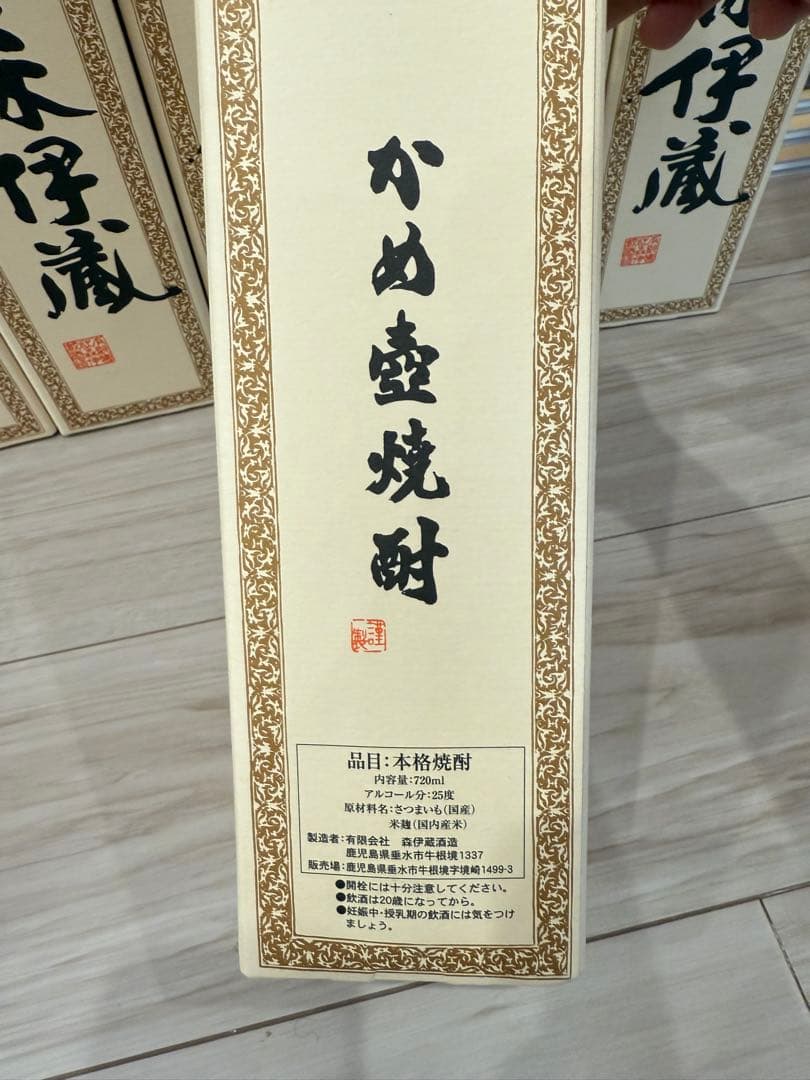 かめ壺焼酎
謹製
品目:本格焼酎
内容量:720ml
アルコール分:25度
原材料名:さつまいも(国産)
米麹(国内産米)
製造者:有限会社 森伊蔵酒造
鹿児島県垂水市牛根境1337
販売場:鹿児島県垂水市牛根境字境崎1499-3
●開栓には十分注意してください。
●飲酒は20歳になってから。
●妊娠中・授乳期の飲酒には気をつけ
ましょう。
森伊蔵
伊蔵